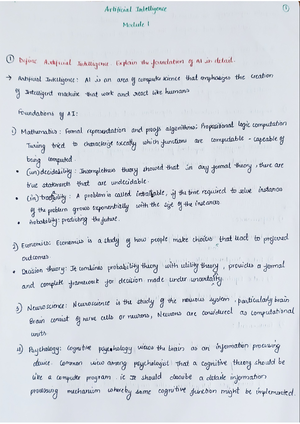 Artificial Intelligence
Module 1
1
1 Define Artificial Intelligence. Explain the foundation of AI in detail.
→ Artificial Intelligence: AI is an area of computer science that emphasizes the creation
of Intelligent machine that work and react like humans
Foundations of AI:
1) Mathematics: Formal representation and proofs algorithms; Propositional logic computation
Turing tried to characterize exactly which functions are computable - capable of
being computed
• (un)decidability: Incompleteness theory showed that in any formal theory, there are
true statements that are undecidable.
• (in)tractability: A problem is called intractable, if the time required to solve instance
of the problem grows exponentially with the size of the instances
• Probability: predicting the future.
2) Economics: Economics is a study of how people make choices that lead to preferred
outcomes
• Decision theory: It combines probability theory with utility theory, provides a formal
and complete framework for decision made under uncertainty
3) Neuroscience: Neuroscience is the study of the nervous system, particularly brain
Brain consist of nerve cells or neurons, Neurons are considered as computational
units
4) Psychology: Cognitive psychology views the brain as an information processing
device. Common view among psychologist that a cognitive theory should be
like a computer program ie It should describe a detail information
processing mechanism whereby some cognitive function might be implemented.